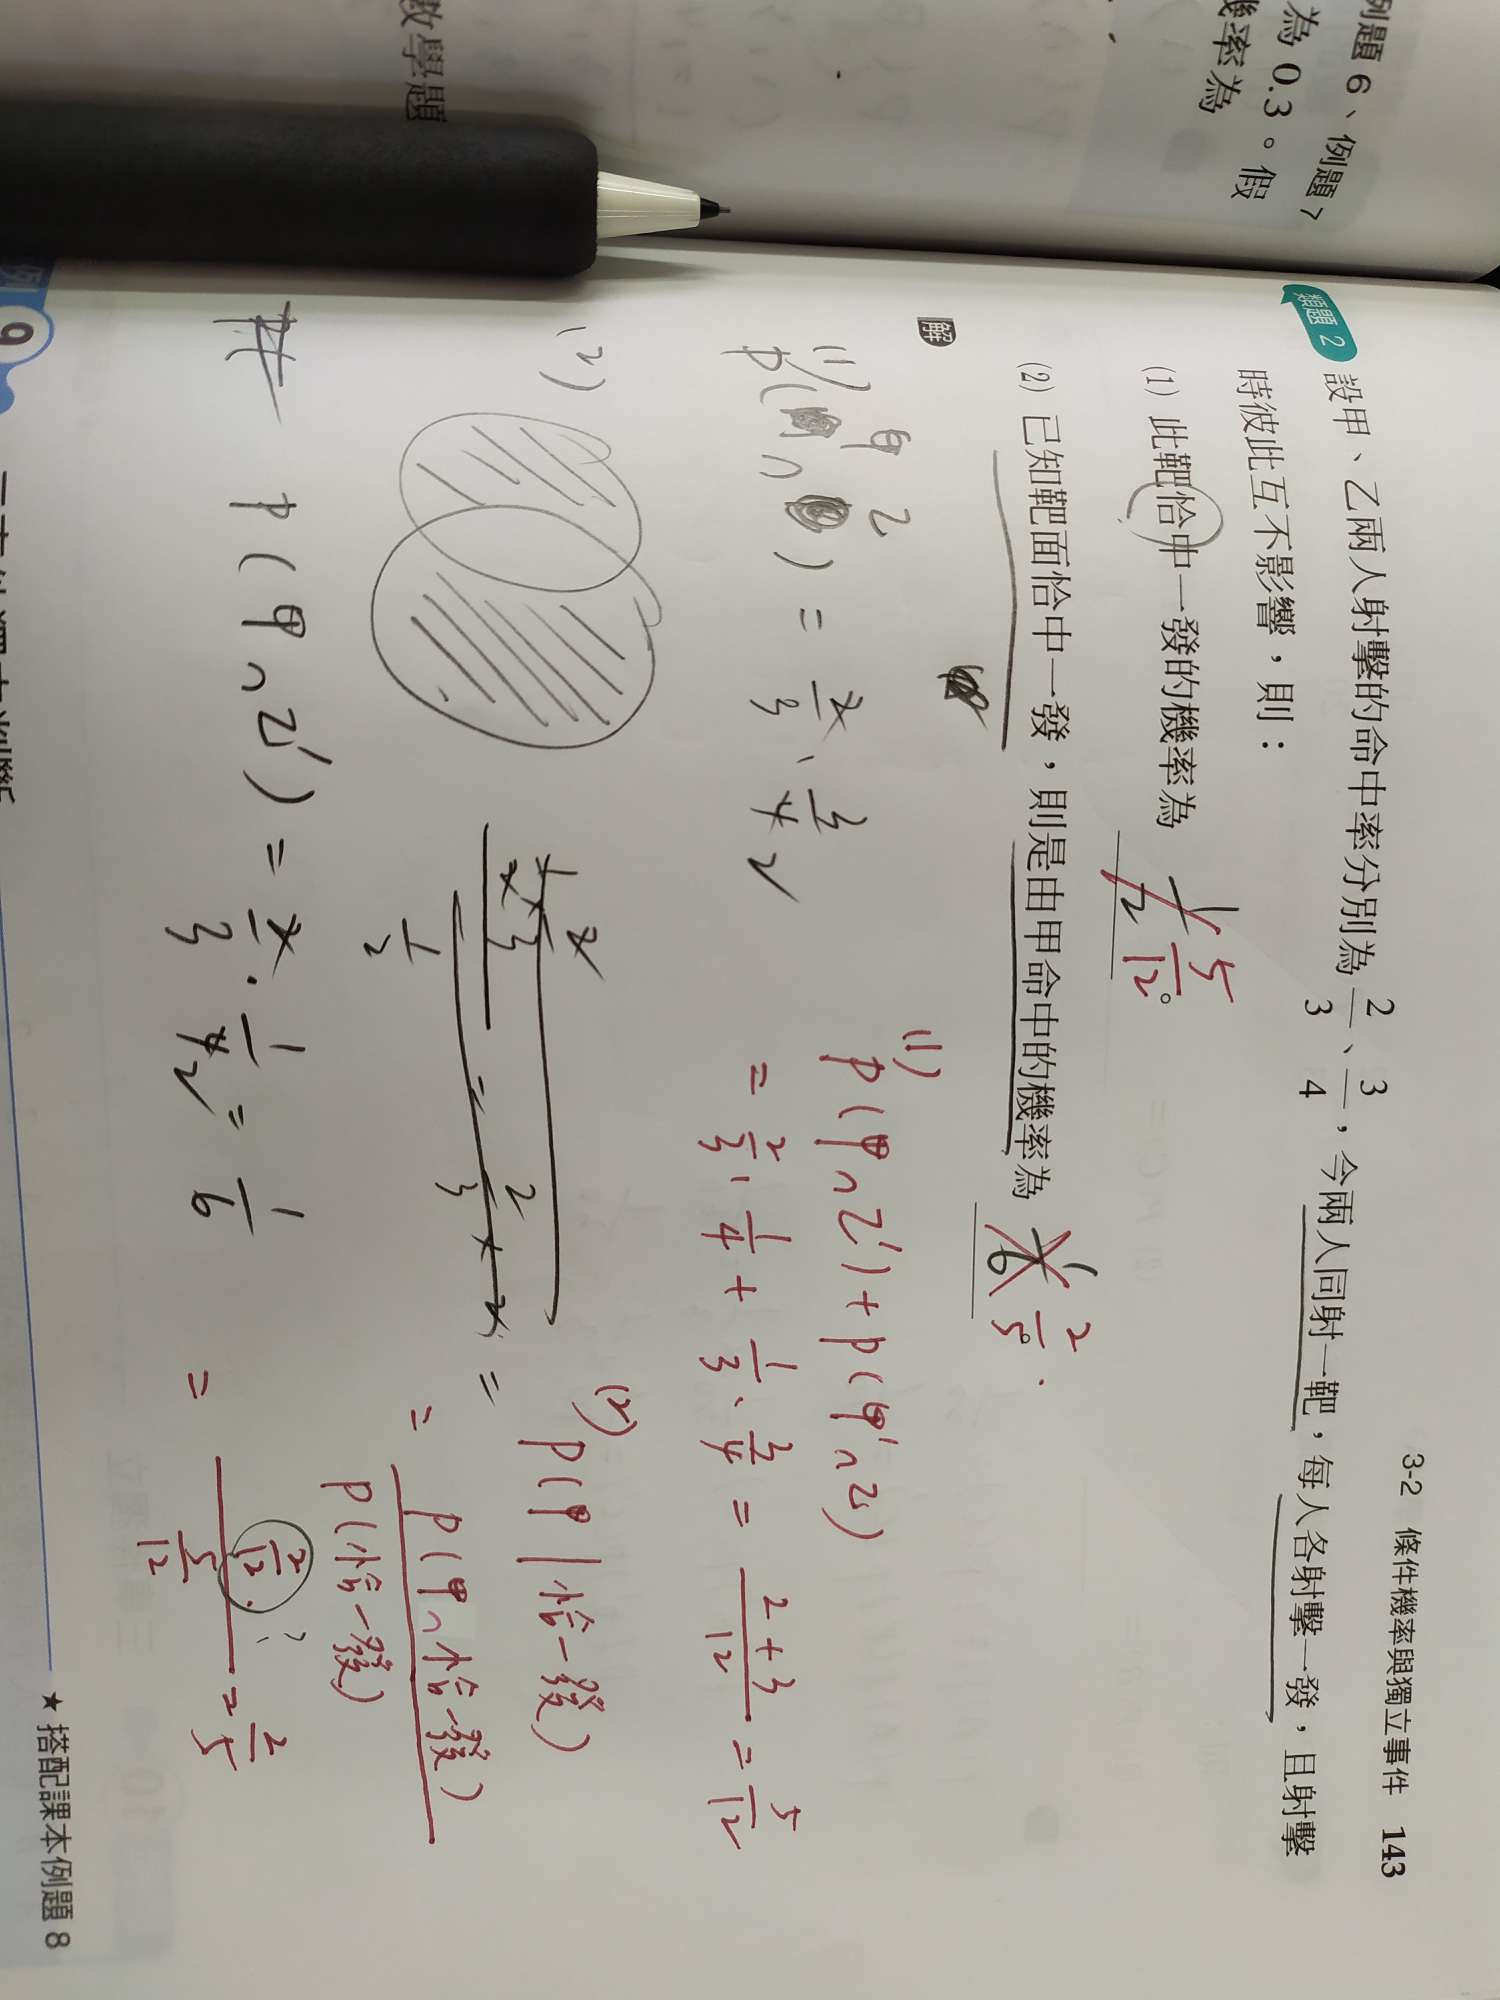 例題 6、例題 7
為 0.3。假
機率為
數學題
3-2 條件機率與獨立事件 143
類題 2
設甲、乙兩人射擊的命中率分別為 2/3、3/4,今兩人同射一靶,每人各射擊一發,且射擊
時彼此互不影響,則:
(1) 此靶恰中一發的機率為 1/2 5/12。
(2) 已知靶面恰中一發,則是由甲命中的機率為 1/6 2/5。
解
(1) P(甲∩乙) = 2/3、3/4 2
(1) P(甲∩乙') + P(甲'∩乙)
= 2/3、1/4 + 1/3、3/4 = 2+3/12 = 5/12
(2)
1/2
= 2/3
=
(2) P(甲|恰一發)
= P(甲∩恰一發)/P(恰一發)
# P(甲∩乙') = 2/3 · 1/4 2 = 1/6
= 2/12/5/12 = 2/5
?
例 9
★ 搭配課本例題 8